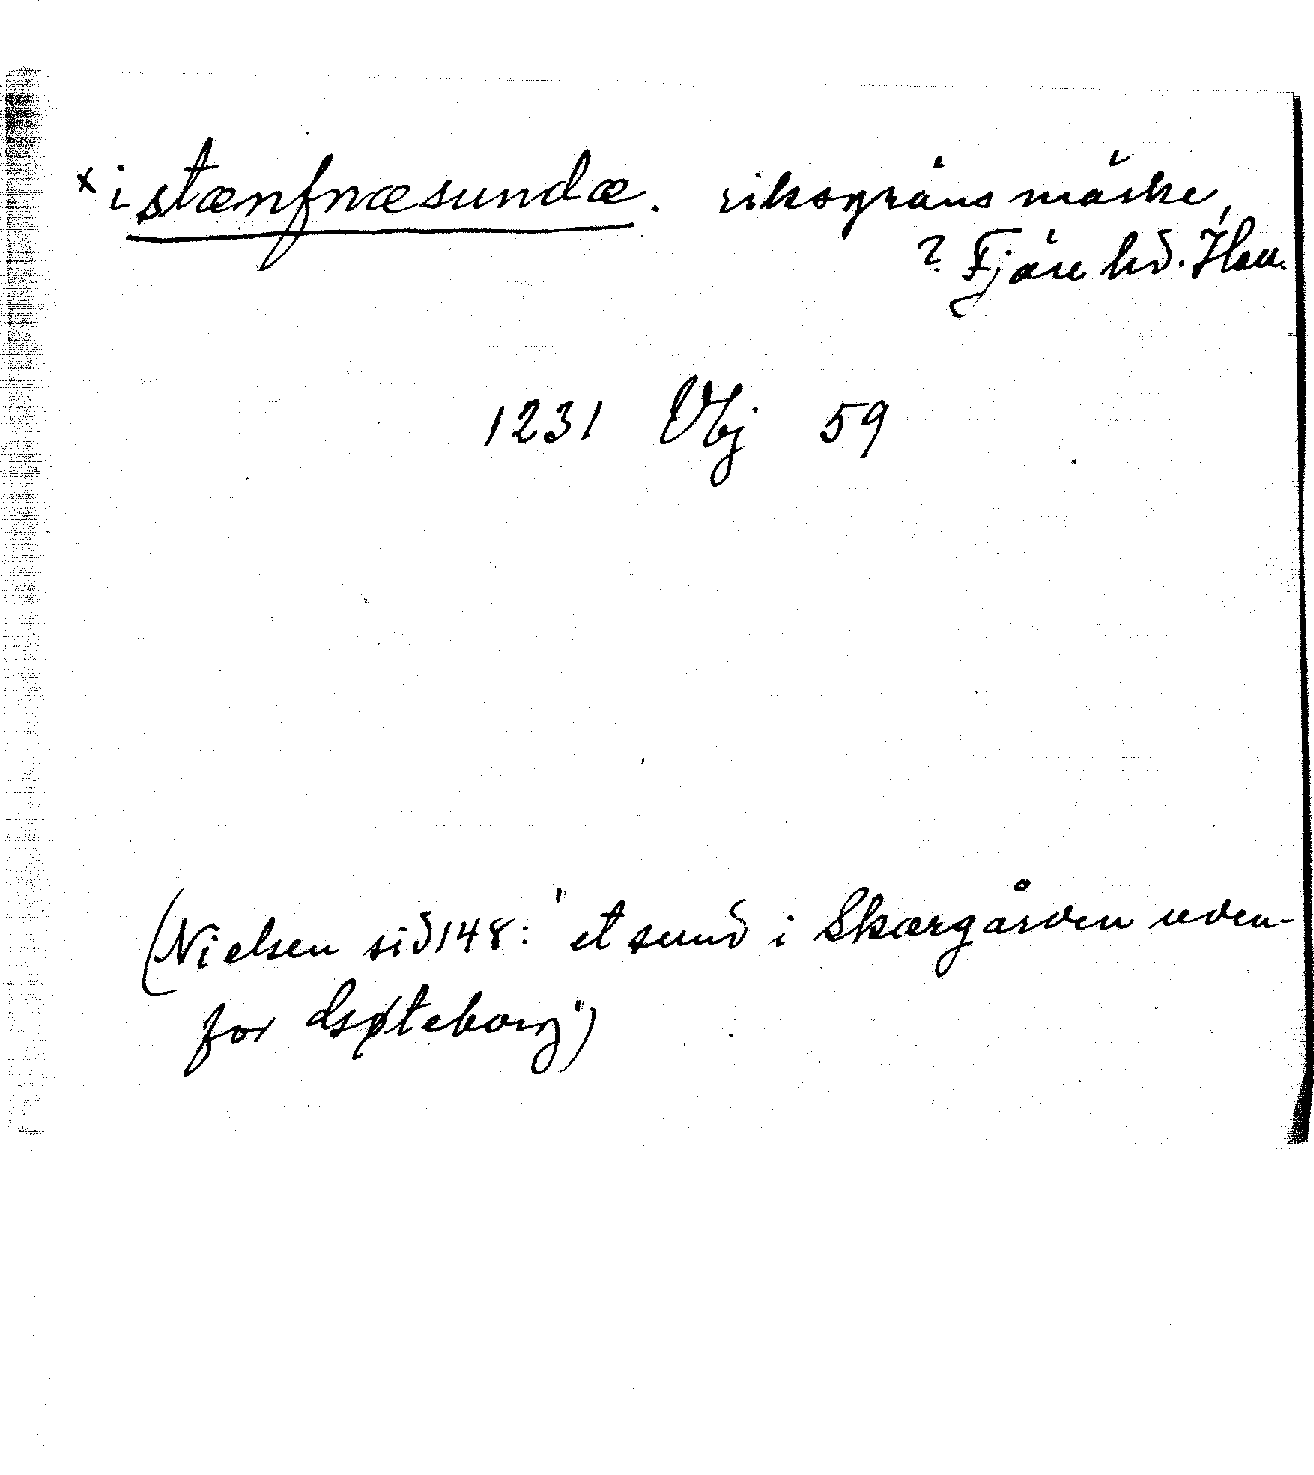 x i stænfnæsundæ. riksgräns märke,
? Fjäre hd. Hall.
1231 Vbj 59
(Nielsen sid 148: "et sund i Skærgården uden-
for Gøteborg")